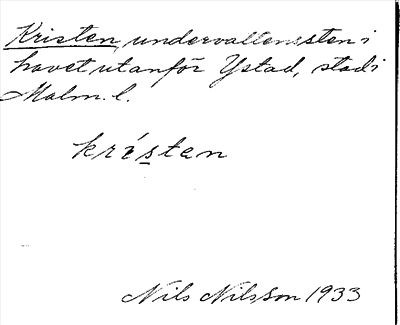 Kristen, undervattenssten i
havet utanför Ystad, stad i
Malm. l.
krísten
Nils Nilsson 1933